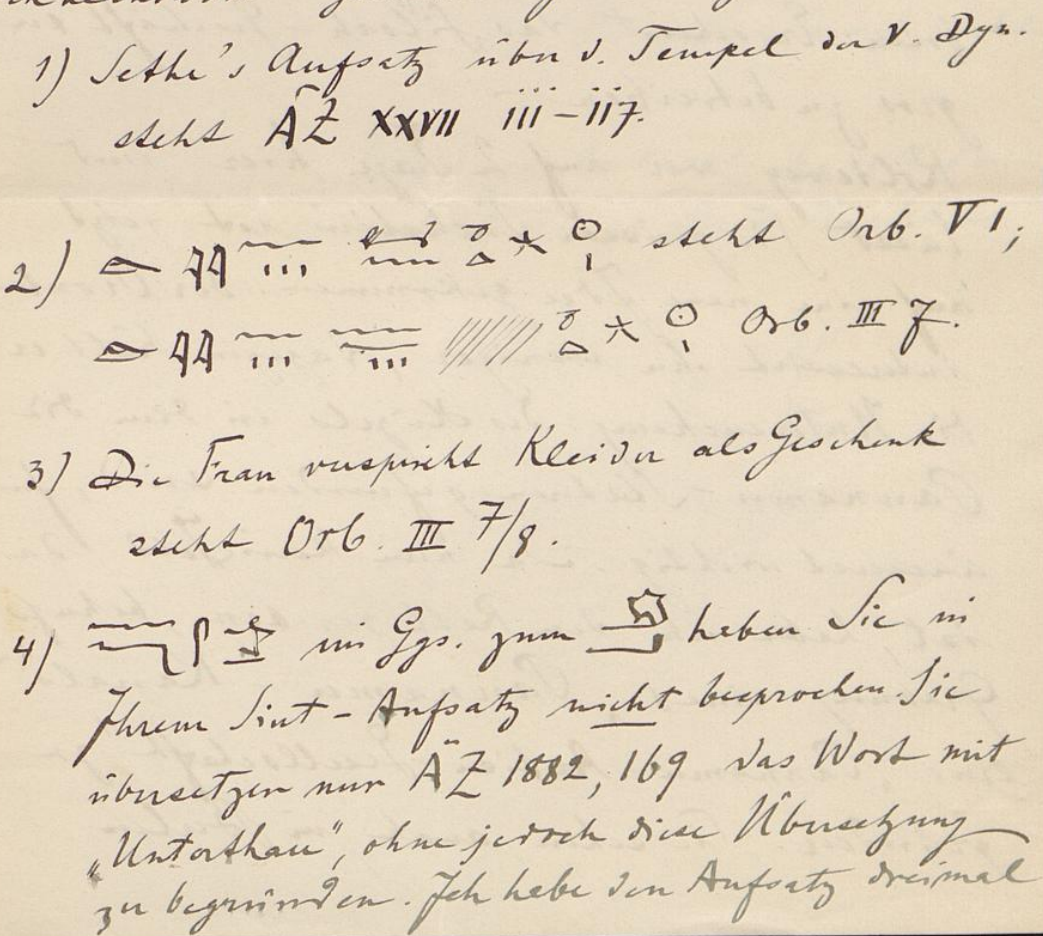 1) Sethe's Aufsatz über d. Tempel der V. Dyn.
steht ÄZ XXVII 111–117.
2) steht Orb. VI,
Orb. III 7.
3) Die Frau verspricht Kleider als Geschenk
steht Orb. III 7/8.
4) im Ggs. zum haben Sie in
Ihrem Siut-Aufsatz nicht besprochen. Sie
übersetzen nur ÄZ 1882, 169 das Wort mit
„Unterthan", ohne jedoch diese Übersetzung
zu begründen. Ich habe den Aufsatz dreimal